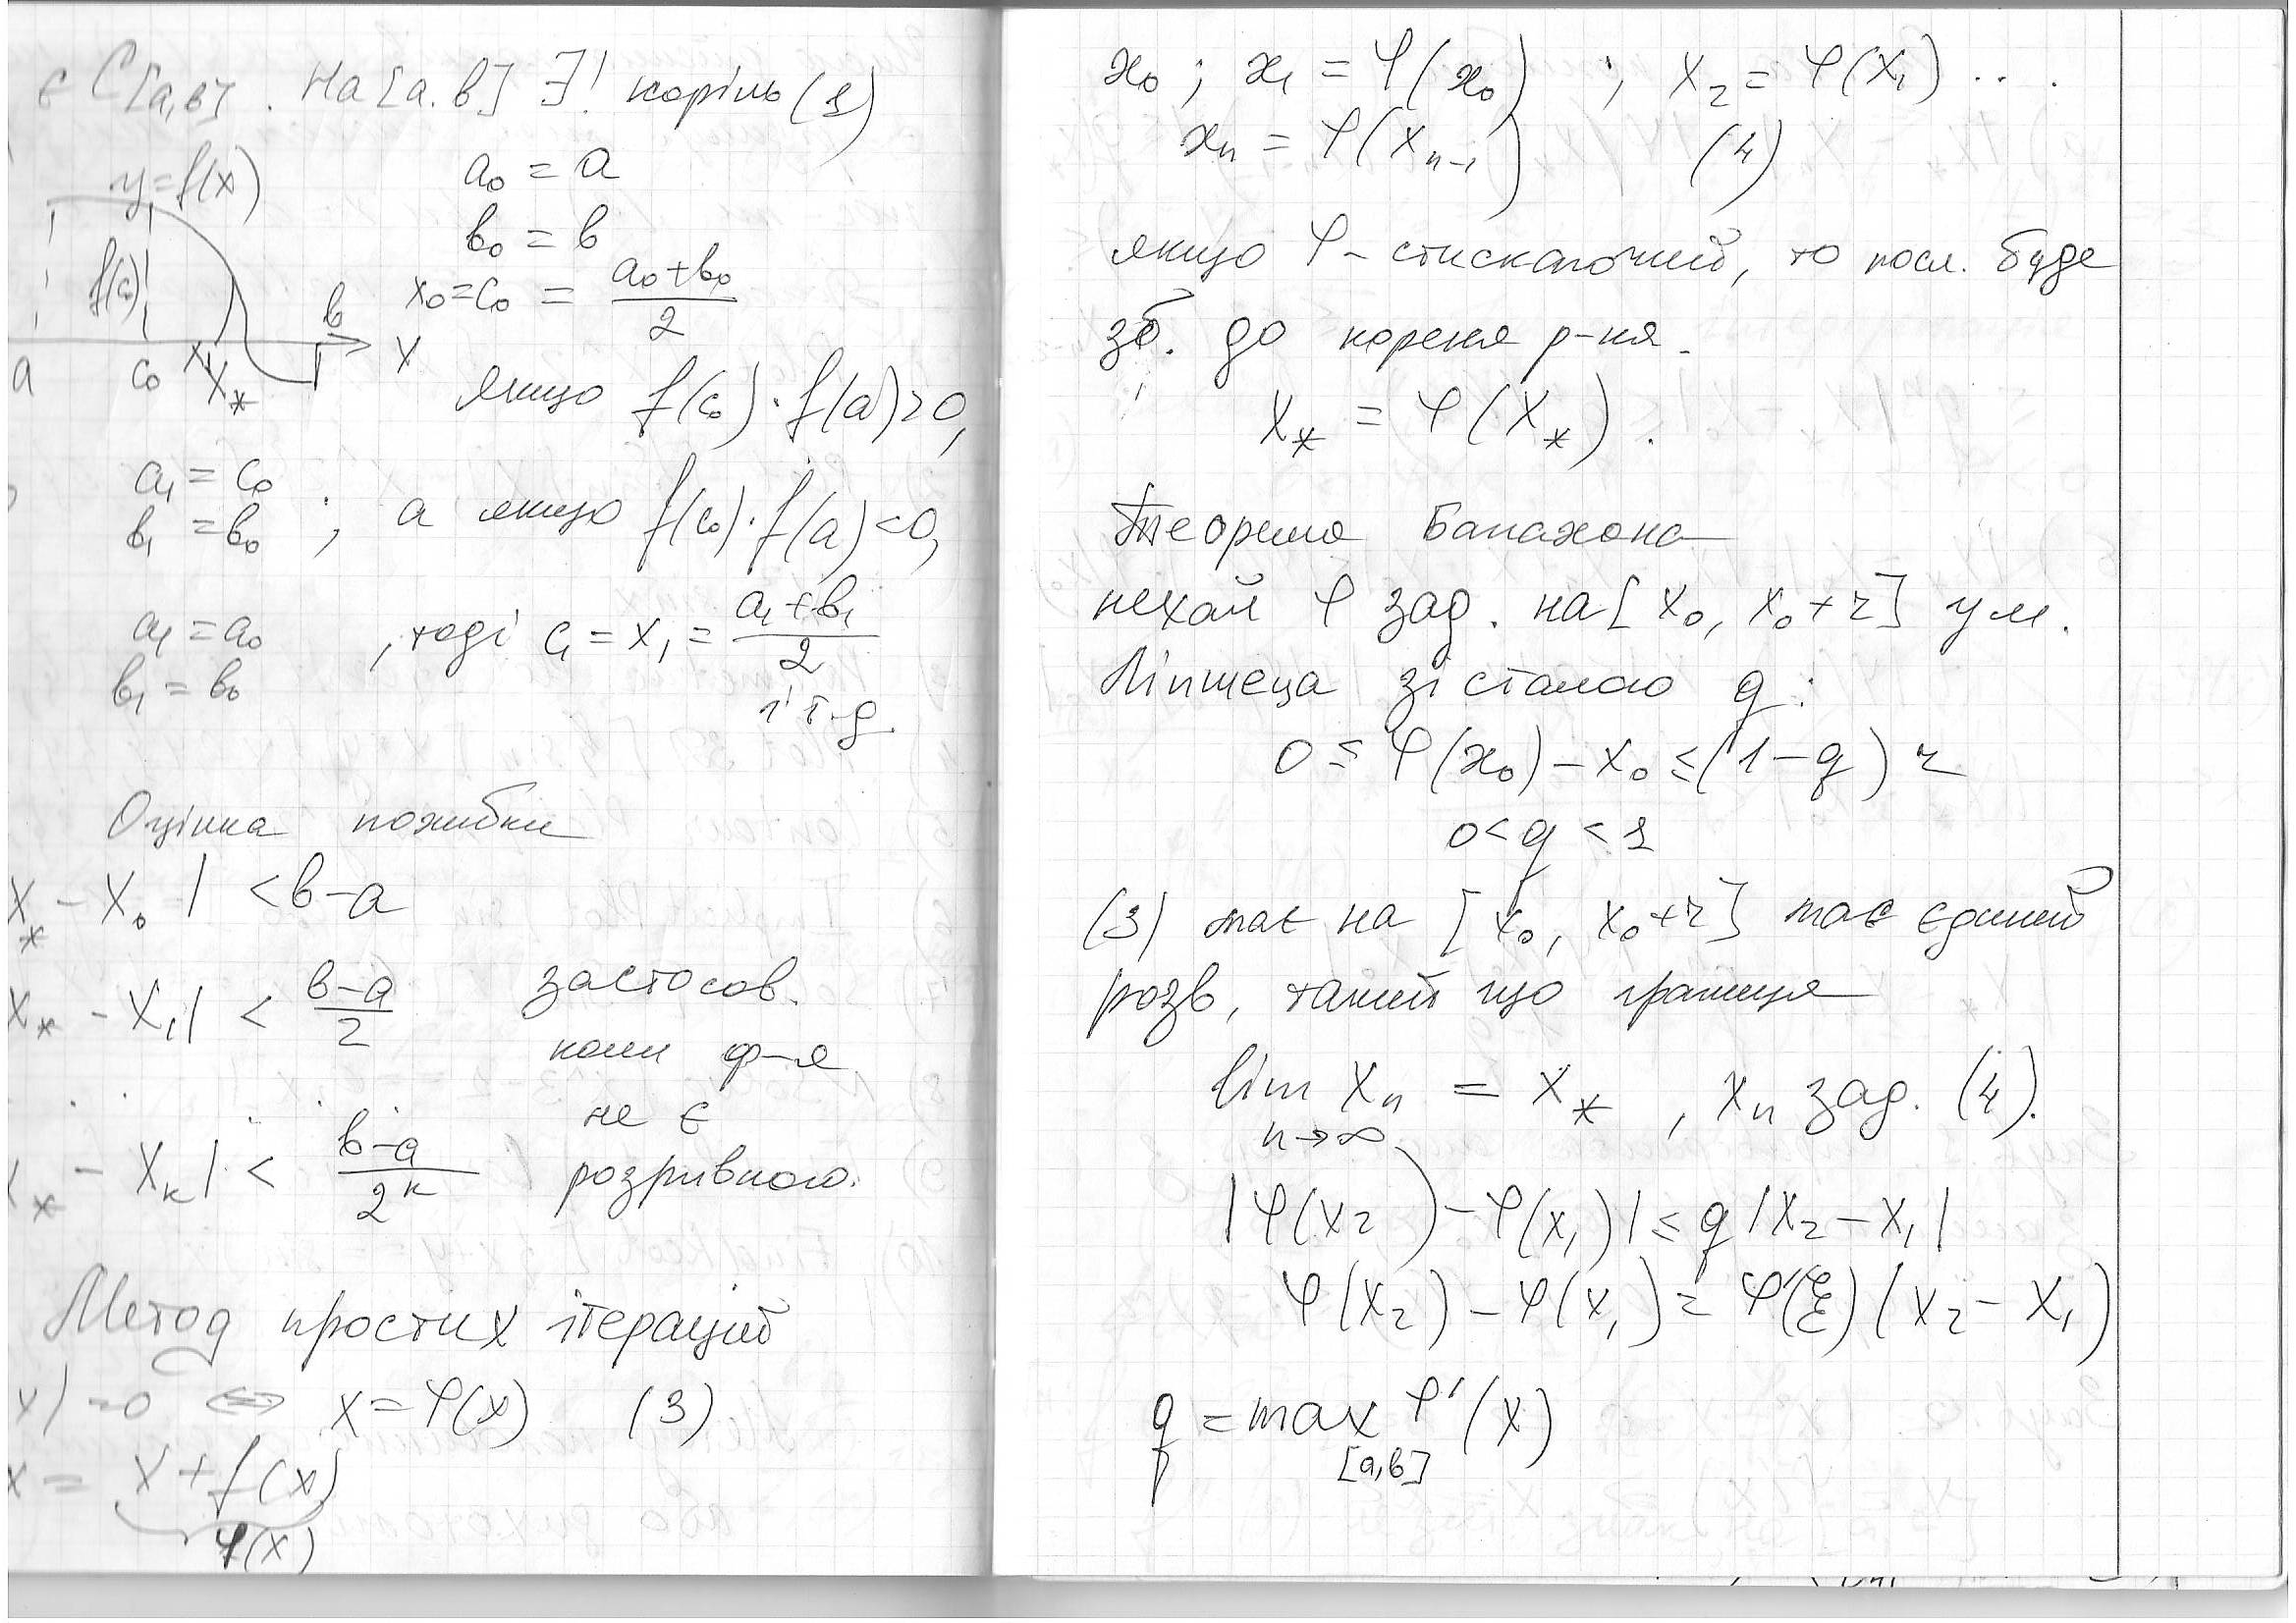 є C[a,в]. На [a. в] ∃! корінь (1)
y=f(x)
a₀ = a
в₀ = в
f(c₀)
в
x₀=c₀ = (a₀+в₀)/2
a c₀ x₁ x* x
якщо f(c₀)·f(a)>0,
a₁ = c₀
в₁ = в₀ ; а якщо f(c₀)·f(a)<0,
a₁ = a₀
в₁ = в₀ , тоді c₁ = x₁ = (a₁+в₁)/2
і т.д.
Оцінка похибки
x* - x₀ | < в-a
x* - x₁| < (в-a)/2 застосов.
коли ф-я
не є
x* - xₖ| < (в-a)/2ᵏ розривною.
Метод простих ітерацій
x) =0 ⇔ x = φ(x) (3)
x = x + f(x)
φ(x)
x₀ ; x₁ = φ(x₀) ; x₂ = φ(x₁) ...
xₙ = φ(xₙ₋₁) (4)
якщо φ - стискаючий, то посл. буде
зб. до кореня р-ня.
x* = φ(x*).
Теорема Банахона
нехай φ зад. на [x₀, x₀+r] ум.
Ліпшеца зі сталою q:
0 ≤ φ(x₀) - x₀ ≤ (1-q) r
0 < q < 1
(3) має на [x₀, x₀+r] має єдиний
розв, такий що границя
lim xₙ = x* , xₙ зад. (4).
n→∞
|φ(x₂) - φ(x₁)| ≤ q |x₂ - x₁|
φ(x₂) - φ(x₁) = φ'(ξ) (x₂ - x₁)
q = max φ'(x)
[a,в]